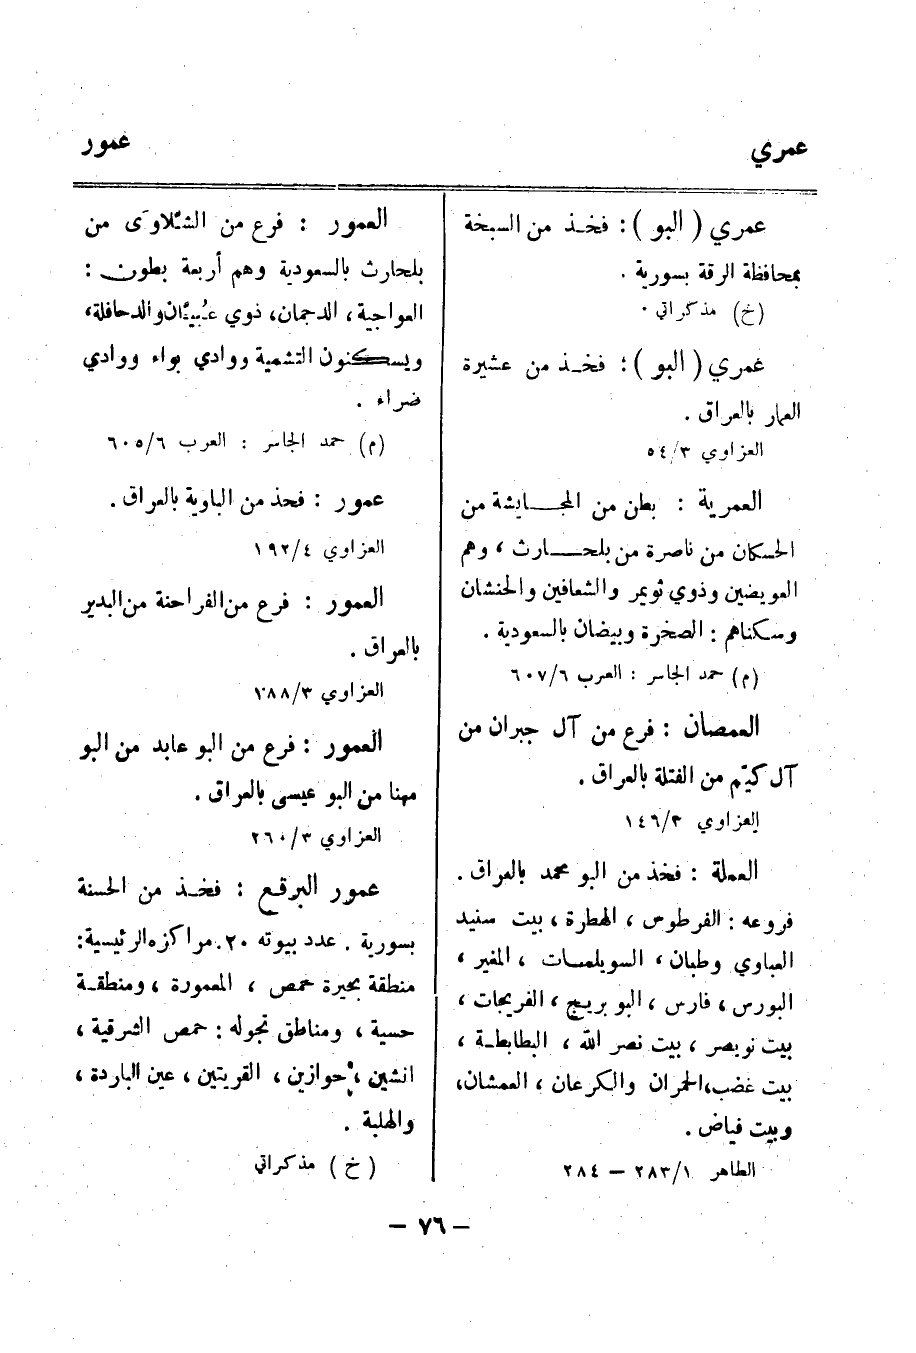 عمري
عمور
عمري ( البو ) : فخـذ من السبخة
بمحافظة الرقة بسورية .
(خ) مذكراتي .
عمري ( البو ) : فخـذ من عشيرة
العمار بالعراق .
العزاوي ٥٤/٣
العمرية : بطن من المجـايشة من
الحسكان من ناصرة من بلحـارث ، وهم
العويضين وذوي ثويمر والشعافين والحنشان
وسكناهم : الصخرة وبيضان بالسعودية .
(م) حمد الجاسر : العرب ٦٠٧/٦
العمصان : فرع من آل جبران من
آل كيّم من الفتلة بالعراق .
العزاوي ١٤٦/٣
العملة : فخذ من البو محمد بالعراق .
فروعه : الفرطوس ، الهطرة ، بيت سنيد
العباوي وطبان ، السويلمـات ، المغير ،
البورس ، فارس ، البو بريـج ، الفريجات ،
بيت نويصر ، بيت نصر الله ، البطابطـة ،
بيت غضب، الحمران والكرعان ، العمشان،
وبيت فياض .
الطاهر ٢٨٣/١ – ٢٨٤
العمور : فرع من الشلاوى من
بلحارث بالسعودية وهم أربعة بطون :
العواجية ، الدجمان، ذوي عُبيّان والدحافلة،
ويسكنون التشمية ووادي بواء ووادي
ضراء .
(م) حمد الجاسر : العرب ٦٠٥/٦
عمور : فخذ من الباوية بالعراق .
العزاوي ١٩٢/٤
العمور : فرع من الفراحنة من البدير
بالعراق .
العزاوي ٢٨٨/٣
العمور : فرع من البو عابد من البو
مهنا من البو عيسى بالعراق .
العزاوي ٢٦٠/٣
عمور البرقـع : فخـذ من الحسنة
بسورية . عدد بيوته ٢٠. مراكزه الرئيسية:
منطقة بحيرة حمص ، المعمورة ، ومنطقـة
حسية ، ومناطق تجوله : حمص الشرقية ،
انشين ، حوازين ، القريتين ، عين الباردة ،
والهلبة .
( خ ) مذكراتي
– ٧٦ –